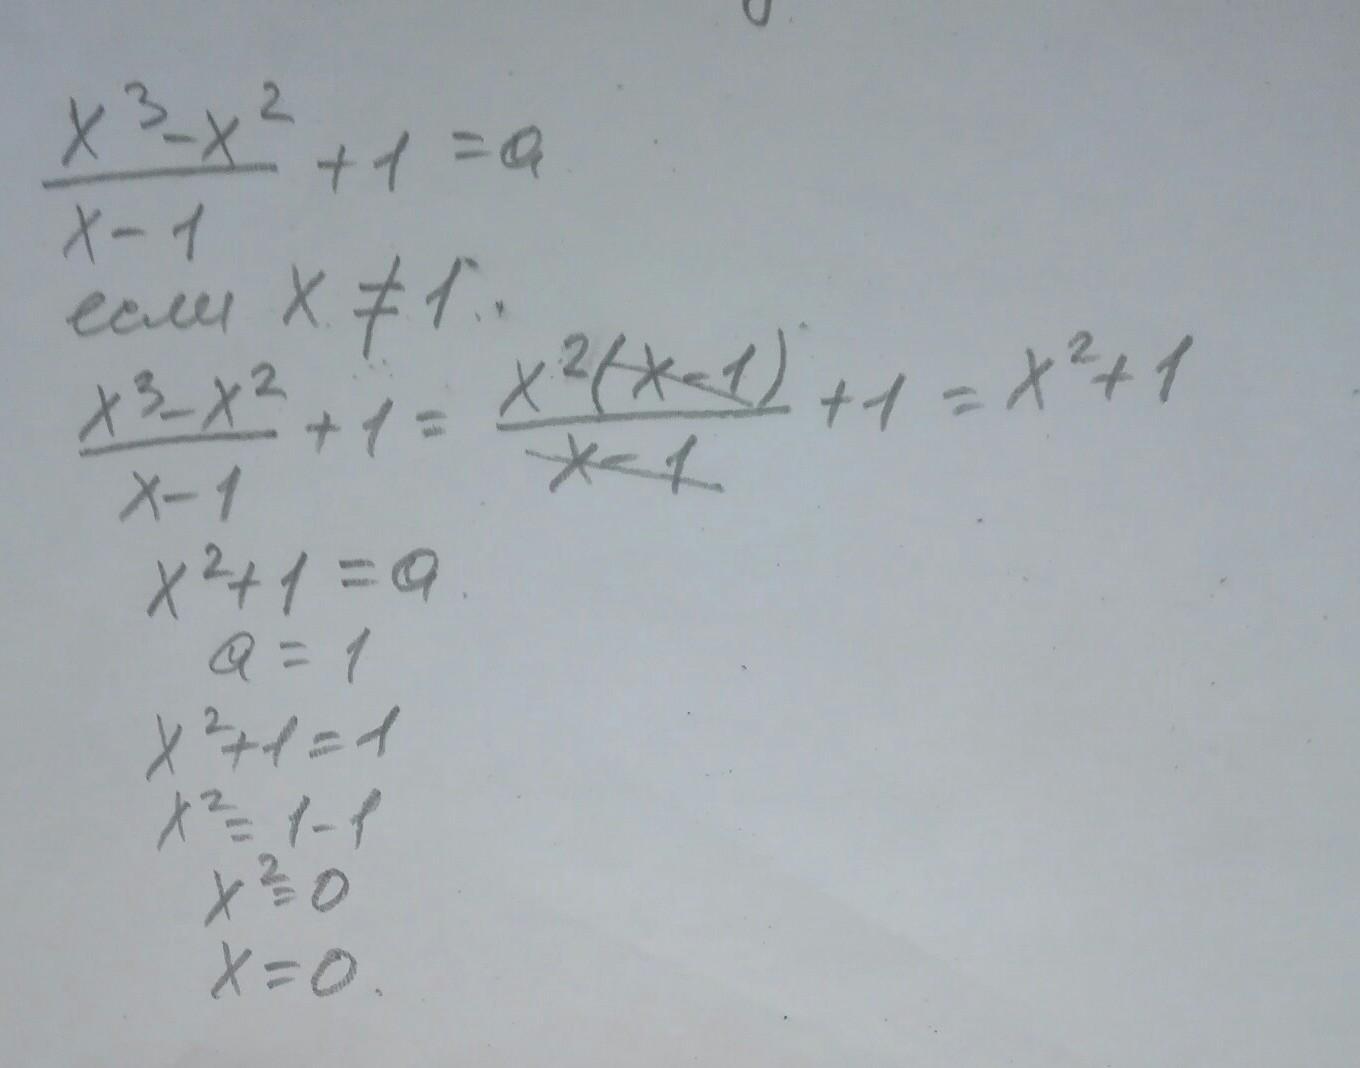 x³-x²/x-1 + 1 = a
если x ≠ 1.
x³-x²/x-1 + 1 = x²(x-1)/x-1 + 1 = x² + 1
x² + 1 = a
a = 1
x² + 1 = 1
x² = 1 - 1
x² = 0
x = 0.